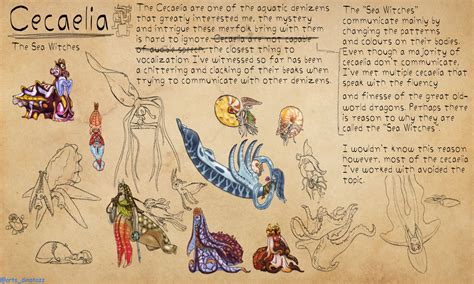 Cecaelia
The Sea Witches
The Cecaelia are one of the aquatic denizens
that greatly interested me, the mystery
and intrigue these merfolk bring with them
is hard to ignore. Cecaelia are not capable
of audio speech, the closest thing to
vocalization I've witnessed so far has been
a chittering and clacking of their beaks when
trying to communicate with other denizens.
The "Sea Witches"
communicate mainly by
changing the patterns
and colours on their bodies.
Even though a majority of
cecaelia don't communicate,
I've met multiple cecaelia that
speak with the fluency
and finesse of the great old-
world dragons. Perhaps there
is reason to why they are
called the "Sea Witches".
I wouldn't know this reason
however, most of the cecaelia
I've worked with avoided the
topic.